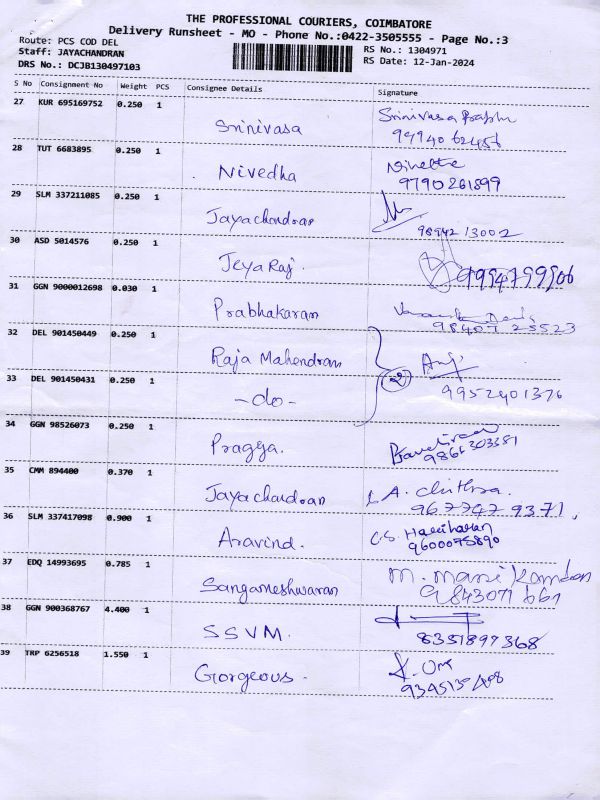 THE PROFESSIONAL COURIERS, COIMBATORE
Delivery Runsheet - MO - Phone No.:0422-3505555 - Page No.:3
Route: PCS COD DEL
Staff: JAYACHANDRAN
DRS No.: DCJB130497103
RS No.: 1304971
RS Date: 12-Jan-2024
S No Consignment No Weight PCS Consignee Details Signature
27 KUR 695169752 0.250 1
Srinivasa Srinivasa Prabhu
28 TUT 6683895 0.250 1
Nivedha Nivetha
9790261899
29 SLM 337211085 0.250 1
Jayachandran
9894213002
30 ASD 5014576 0.250 1
Jeya Raj. 9994799906
31 GGN 9000012698 0.030 1
Prabhakaran
9840725523
32 DEL 901450449 0.250 1
Raja Mahendran
33 DEL 901450431 0.250 1
-do- 2 9952401376
34 GGN 98526073 0.250 1
Pragya.
35 CMM 894400 0.370 1
Jayachandran A. Chithra.
9677479371,
36 SLM 337417098 0.900 1
Aravind. C.S Hariharan
9600075890
37 EDQ 14993695 0.785 1
Sangameshwaran M. Mani Kandan
9843071661
38 GGN 900368767 4.400 1
SSVM. 8331897368
39 TRP 6256518 1.550 1
Gorgeous.